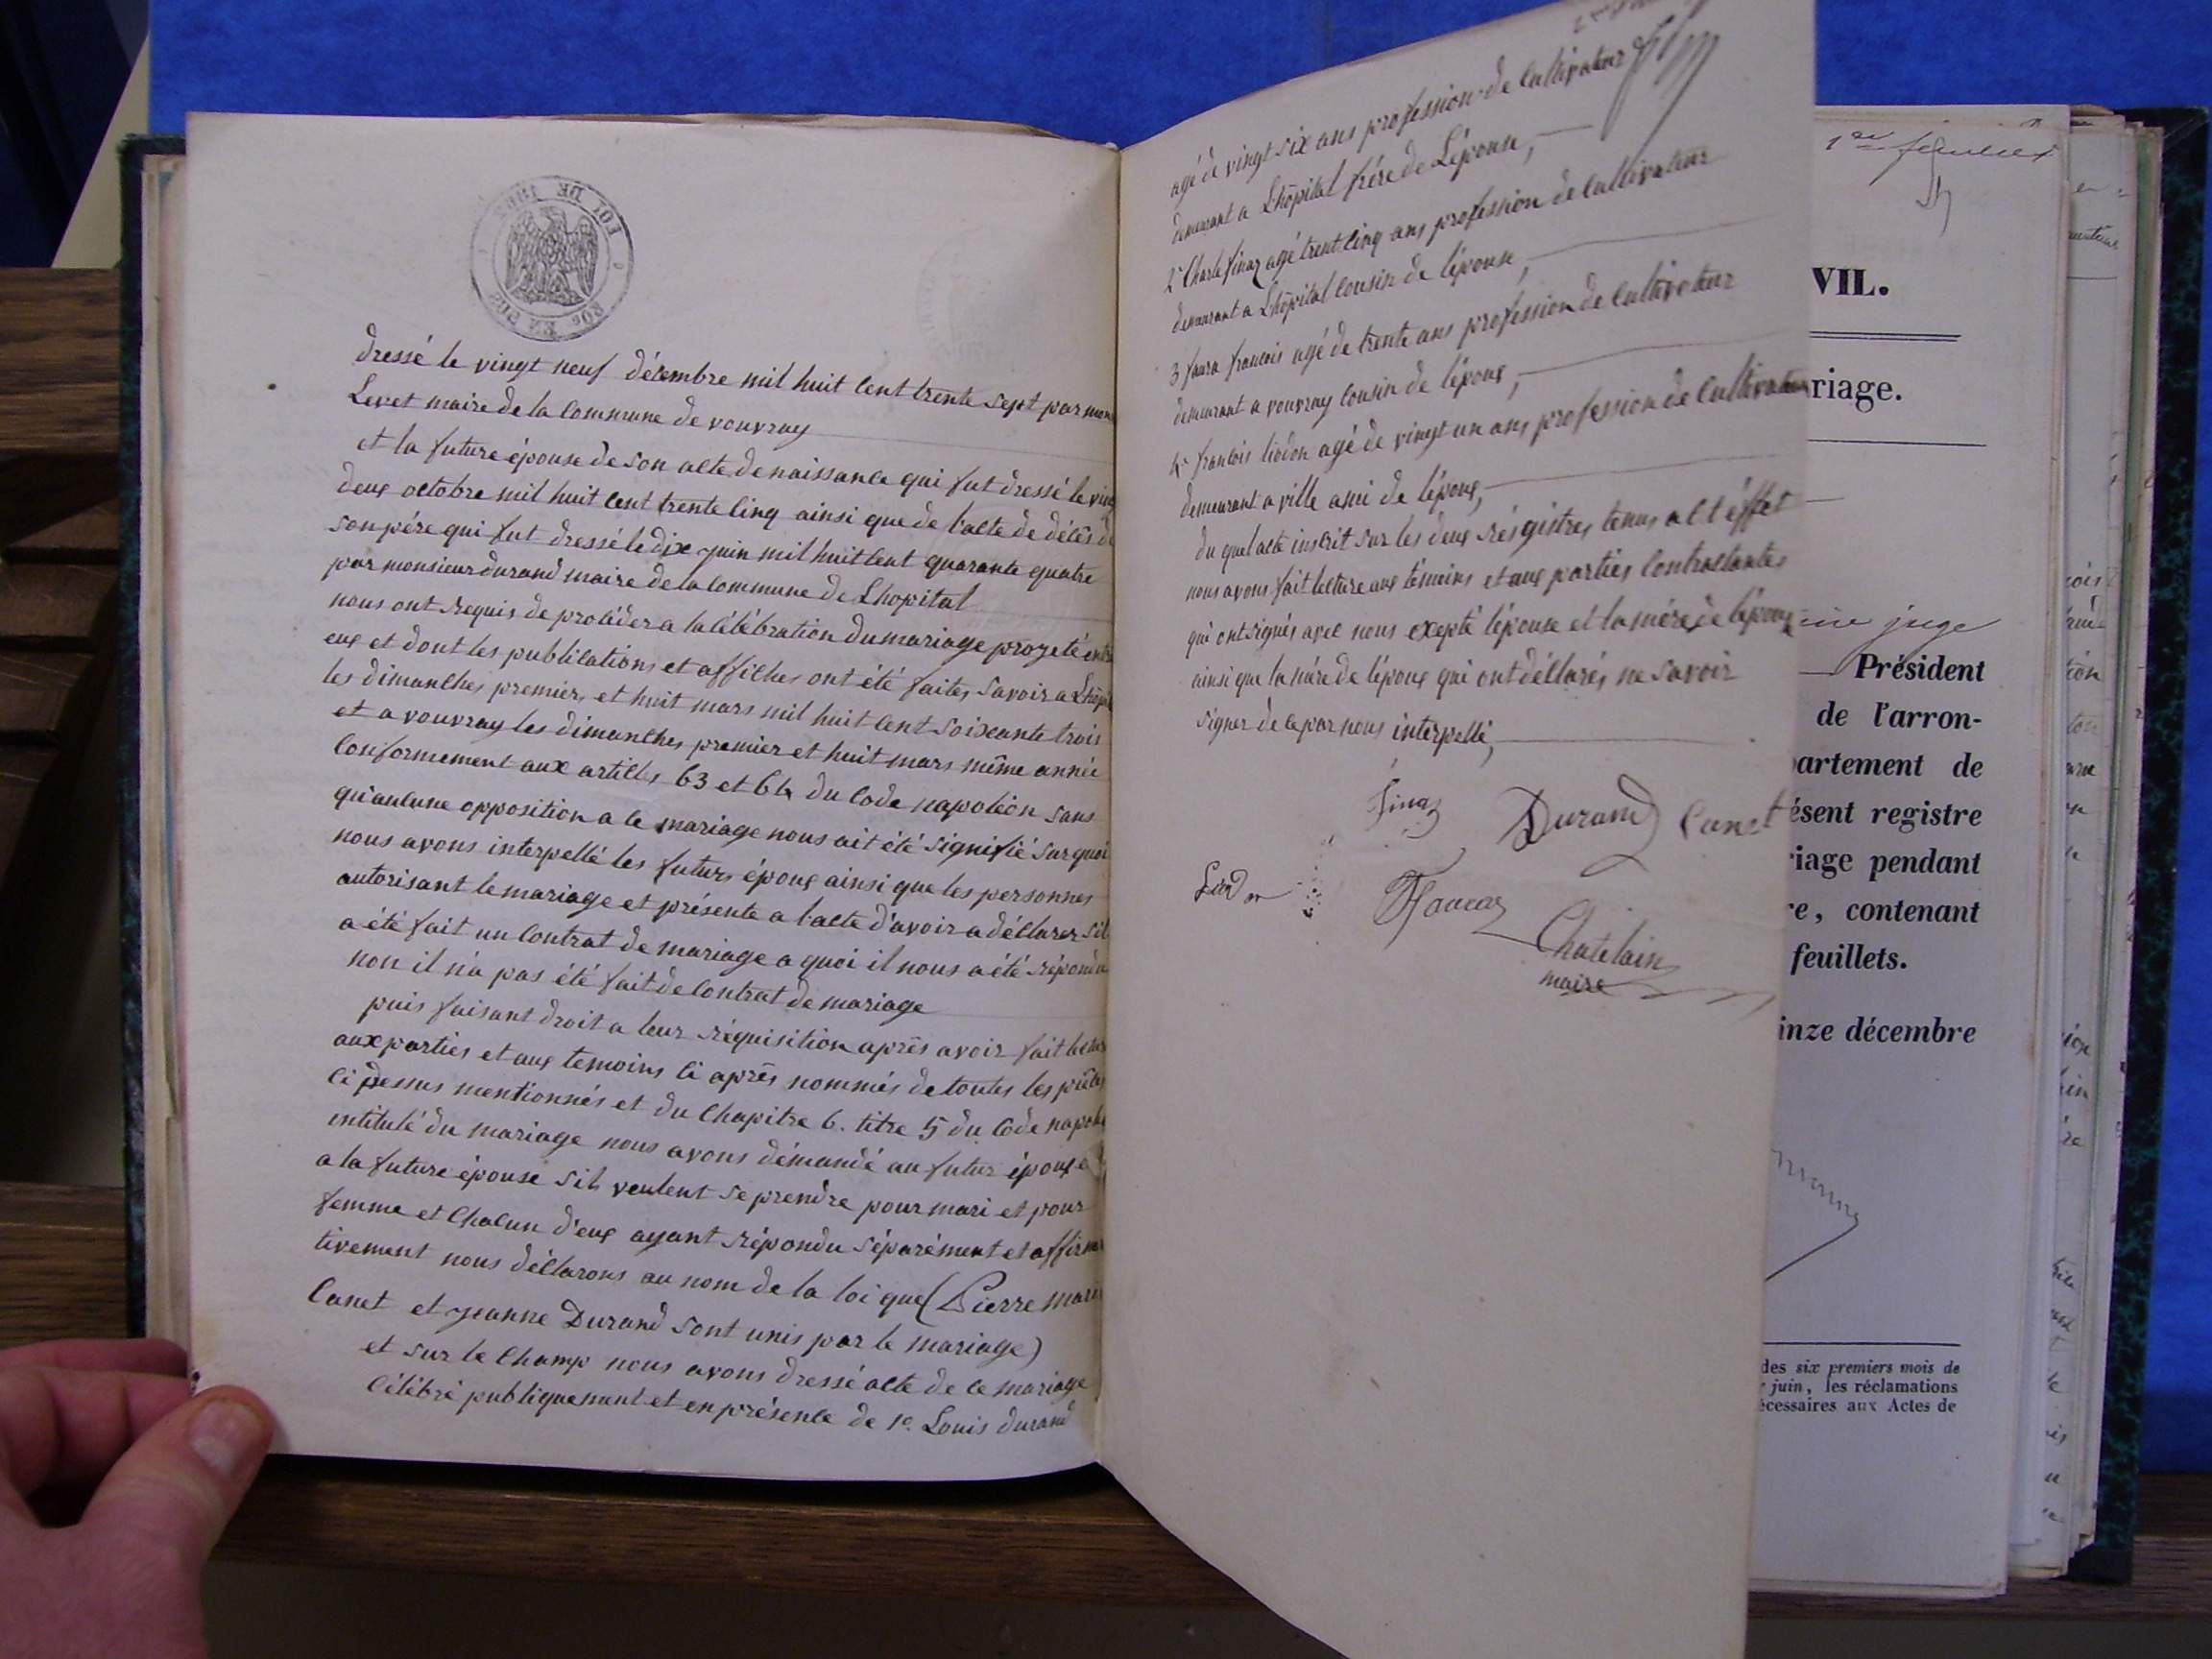 dressé le vingt neuf décembre mil huit cent trente sept par mon
Levet maire de la commune de vouvray
et la future épouse de son acte de naissance qui fut dressé le vin
deux octobre mil huit cent trente cinq ainsi que de l'acte de décès d
son père qui fut dressé le dix juin mil huit cent quarante quatre
par monsieur durand maire de la commune de Lhopital
nous ont requis de procéder a la célébration du mariage progeté entr
eux et dont les publications et affiches ont été faites, savoir a Lhôpi
les dimanches premier, et huit mars mil huit cent soixante trois
et a vouvray les dimanches premier et huit mars même année
conformement aux articles 63 et 64 du code napoléon sans
qu'aucune opposition a ce mariage nous ait été signifié sur quoi
nous avons interpellé les futurs époux ainsi que les personnes
autorisant le mariage et présente a l'acte d'avoir a déclarer sil
a été fait un contrat de mariage a quoi il nous a été répondu
non il n'a pas été fait de contrat de mariage
puis faisant droit a leur réquisition après avoir fait
aux parties et aux temoins ci après nommés de toutes les pièces
ci dessus mentionnés et du Chapitre 6. titre 5 du Code napol
intitulé du mariage nous avons démandé au futur époux e
a la future épouse sils veulent se prendre pour mari et pour
femme et chacun d'eux ayant répondu séparément et affirma
tivement nous déclarons au nom de la loi que (Pierre Marie
Canet et jeanne Durand sont unis par le mariage)
et sur le champ nous avons dressé acte de ce mariage
célébré publiquement et en présence de 1º Louis durand
agé de vingt six ans profession de cultivateur
demeurant a Lhôpital frère de Lépouse,
2º Charle finaz agé trent cinq ans profession de cultivateur
demeurant a Lhôpital cousin de lépouse,
3 faura francois agé de trente ans profession de cultivateur
demeurant a vouvray cousin de lépoux,
4º francois liodon agé de vingt un ans profession de cultivateur
demeurant a ville ami de lépoux,
du quel acte inscrit sur les deux régistres tenus a cet éffet
nous avons fait lecture aux témoins et aux parties contractantes
qui ont signés avec nous exepté lépouse et la mère de lépoux
ainsi que la mére de lépoux qui ont déclarés ne savoir
signer de ce par nous interpellé,
finaz Durand Canet
Chatelain
maire
1er feuillet
VIL.
riage.
juge
Président
de l'arron-
partement de
ésent registre
riage pendant
re, contenant
feuillets.
inze décembre
des six premiers mois de
juin, les réclamations
écessaires aux Actes de